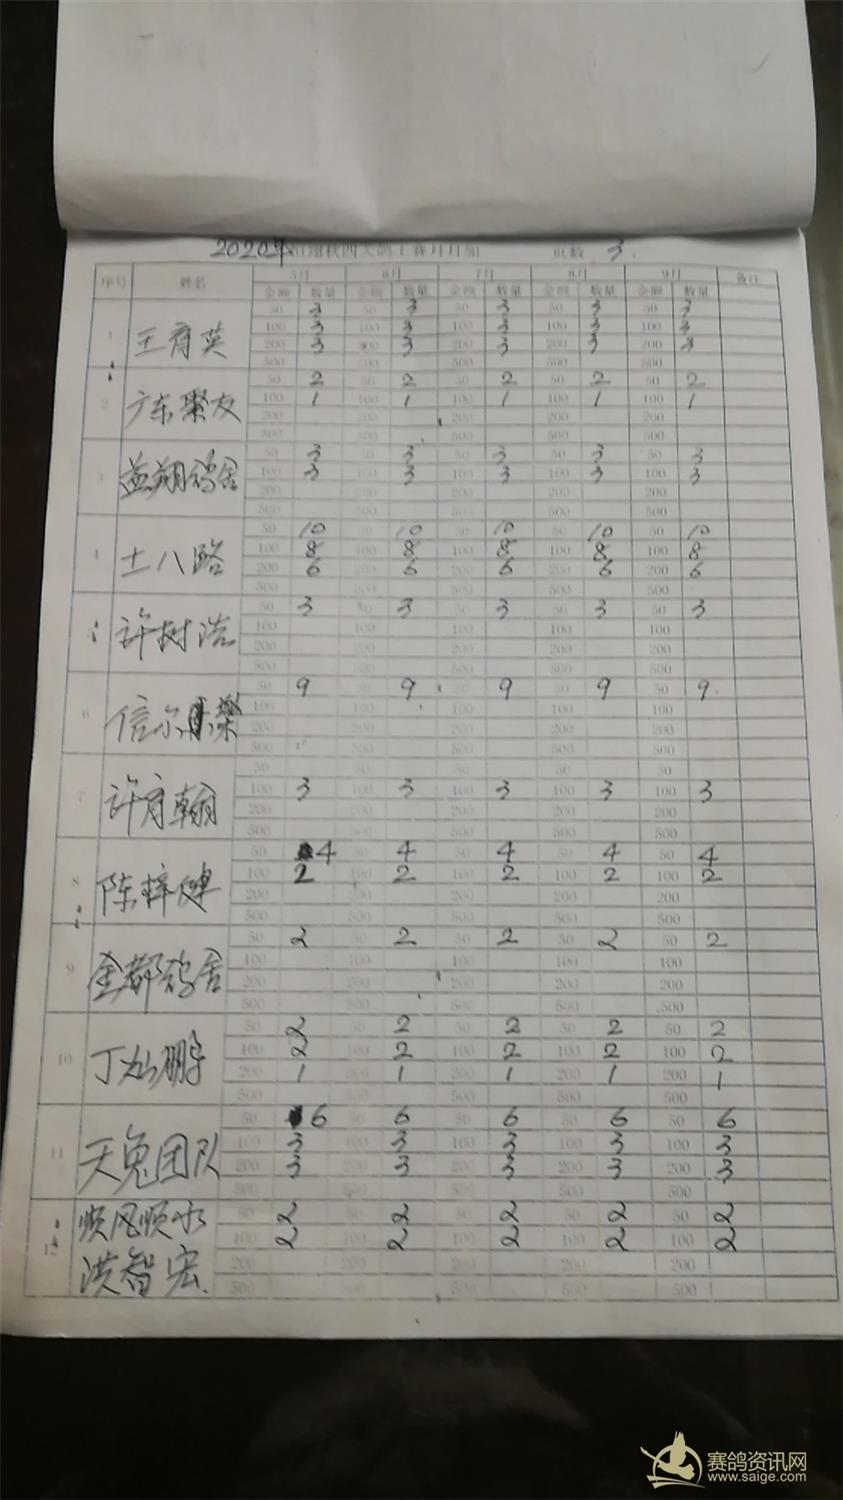 2020年 四大鸽王赛月月加 页数 3.
序号 姓名 5月 6月 7月 8月 9月 备注
金额 数量 金额 数量 金额 数量 金额 数量 金额 数量
1 王育英
50 3 50 3 50 3 50 3 50 3
100 3 100 3 100 3 100 3 100 3
200 3 200 3 200 3 200 3 200 3
500 500 500 500 500
2 广东聚友
50 2 50 2 50 2 50 2 50 2
100 1 100 1 100 1 100 1 100 1
200 200 200 200 200
500 500 500 500 500
3 益翔鸽舍
50 3 50 3 50 3 50 3 50 3
100 3 100 3 100 3 100 3 100 3
200 200 200 200 200
500 500 500 500 500
4 土八路
50 10 50 10 50 10 50 10 50 10
100 8 100 8 100 8 100 8 100 8
200 6 200 6 200 6 200 6 200 6
500 500 500 500 500
许树浩
50 3 50 3 50 3 50 3 50 3
100 100 100 100 100
200 200 200 200 200
500 500 500 500 500
6 信尔乐
50 9 50 9 50 9 50 9 50 9
100 100 100 100 100
200 200 200 200 200
500 500 500 500 500
7 许育翰
50 50 50 50 50
100 3 100 3 100 3 100 3 100 3
200 200 200 200 200
500 500 500 500 500
8 陈梓健
50 4 50 4 50 4 50 4 50 4
100 2 100 2 100 2 100 2 100 2
200 200 200 200 200
500 500 500 500 500
9 金都鸽舍
50 2 50 2 50 2 50 2 50 2
100 100 100 100 100
200 200 200 200 200
500 500 500 500 500
10 丁灿鹏
50 2 50 2 50 2 50 2 50 2
100 2 100 2 100 2 100 2 100 2
200 1 200 1 200 1 200 1 200 1
500 500 500 500 500
11 天兔团队
50 6 50 6 50 6 50 6 50 6
100 3 100 3 100 3 100 3 100 3
200 3 200 3 200 3 200 3 200 3
500 500 500 500 500
12 顺风顺水
洪智宏
50 2 50 2 50 2 50 2 50 2
100 2 100 2 100 2 100 2 100 2
200 200 200 200 200
500 500 500 500 500
赛鸽资讯网
www.saige.com